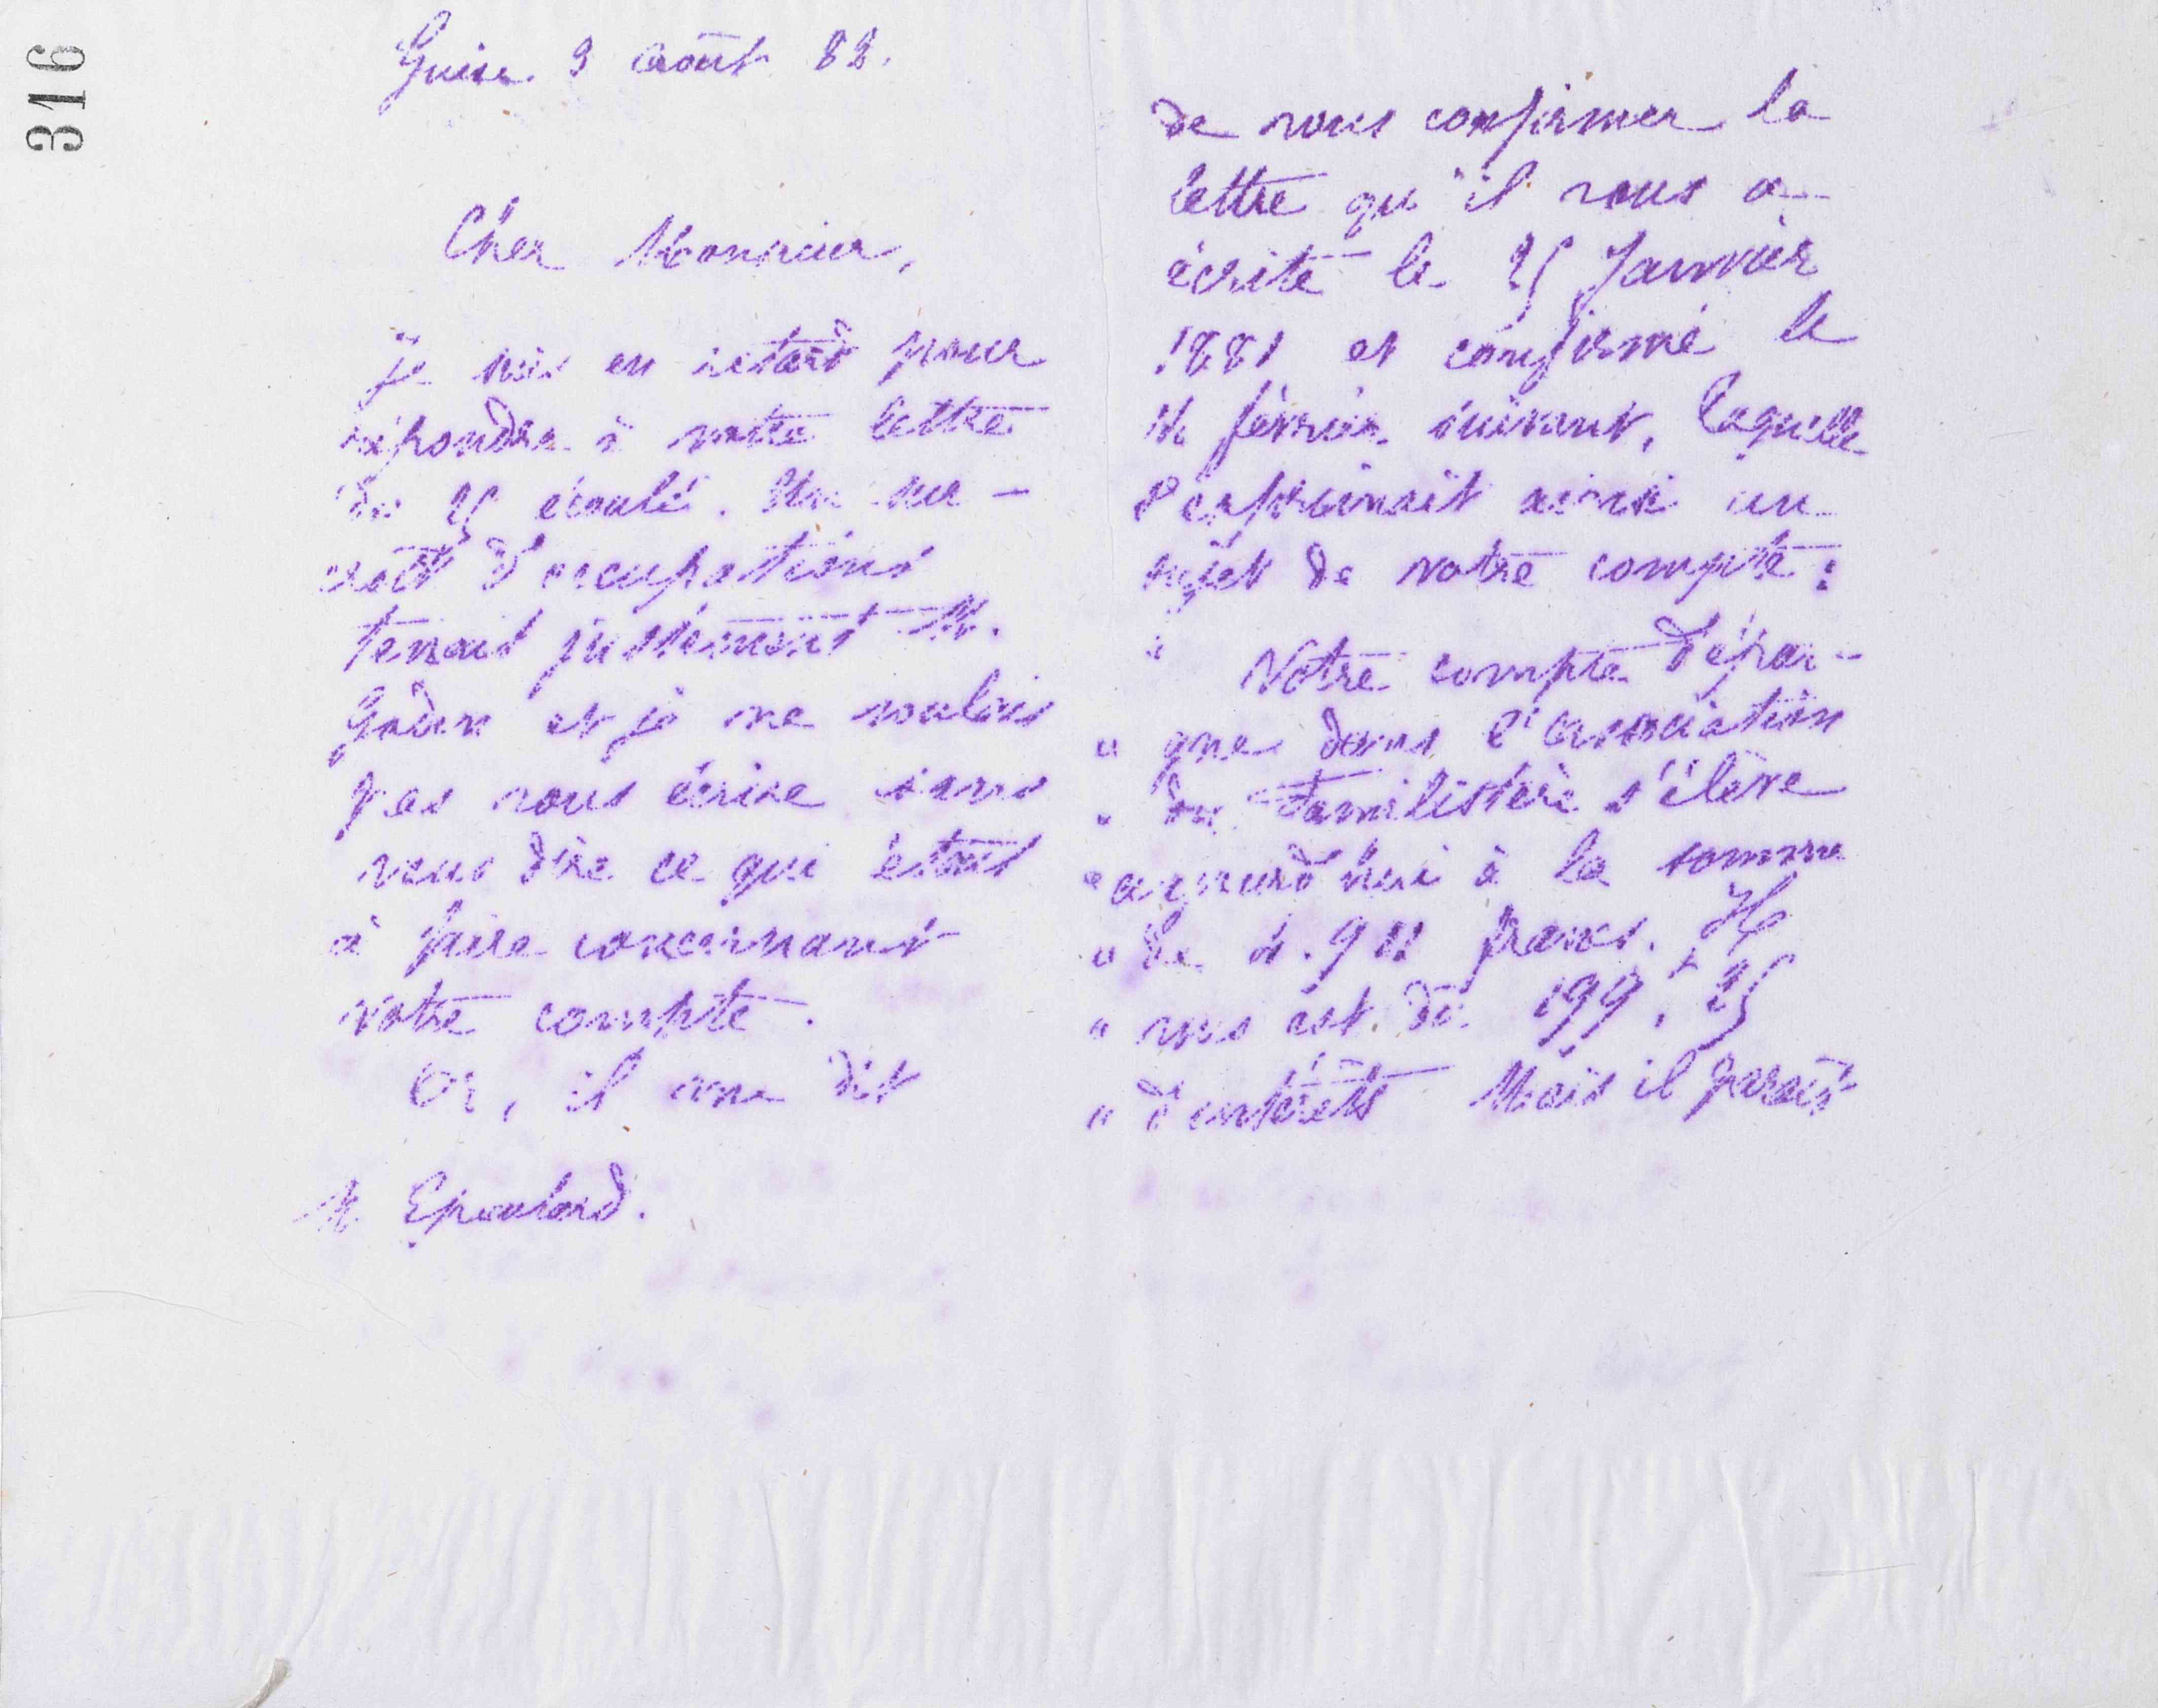 316
Guise 3 août 88.
Cher Monsieur,
Je suis en retard pour
répondre à votre lettre
du 25 écoulé. Un sur-
croît d'occupations
tenait justement M.
Godin et je ne voulais
pas vous écrire sans
vous dire ce qui était
à faire concernant
votre compte.
Or, il me dit
M. Epaulard.
de vous confirmer la
lettre qu'il vous a
écrite le 25 Janvier
1881 et confirmé le
février suivant, laquelle
s'exprimait ainsi au
sujet de votre compte :
" Votre compte d'épar-
" gne dans l'association
" du Familistère s'élève
" aujourd'hui à la somme
" de francs. Il
" vous est dû 199f,25
" d'intérêts Mais il paraît